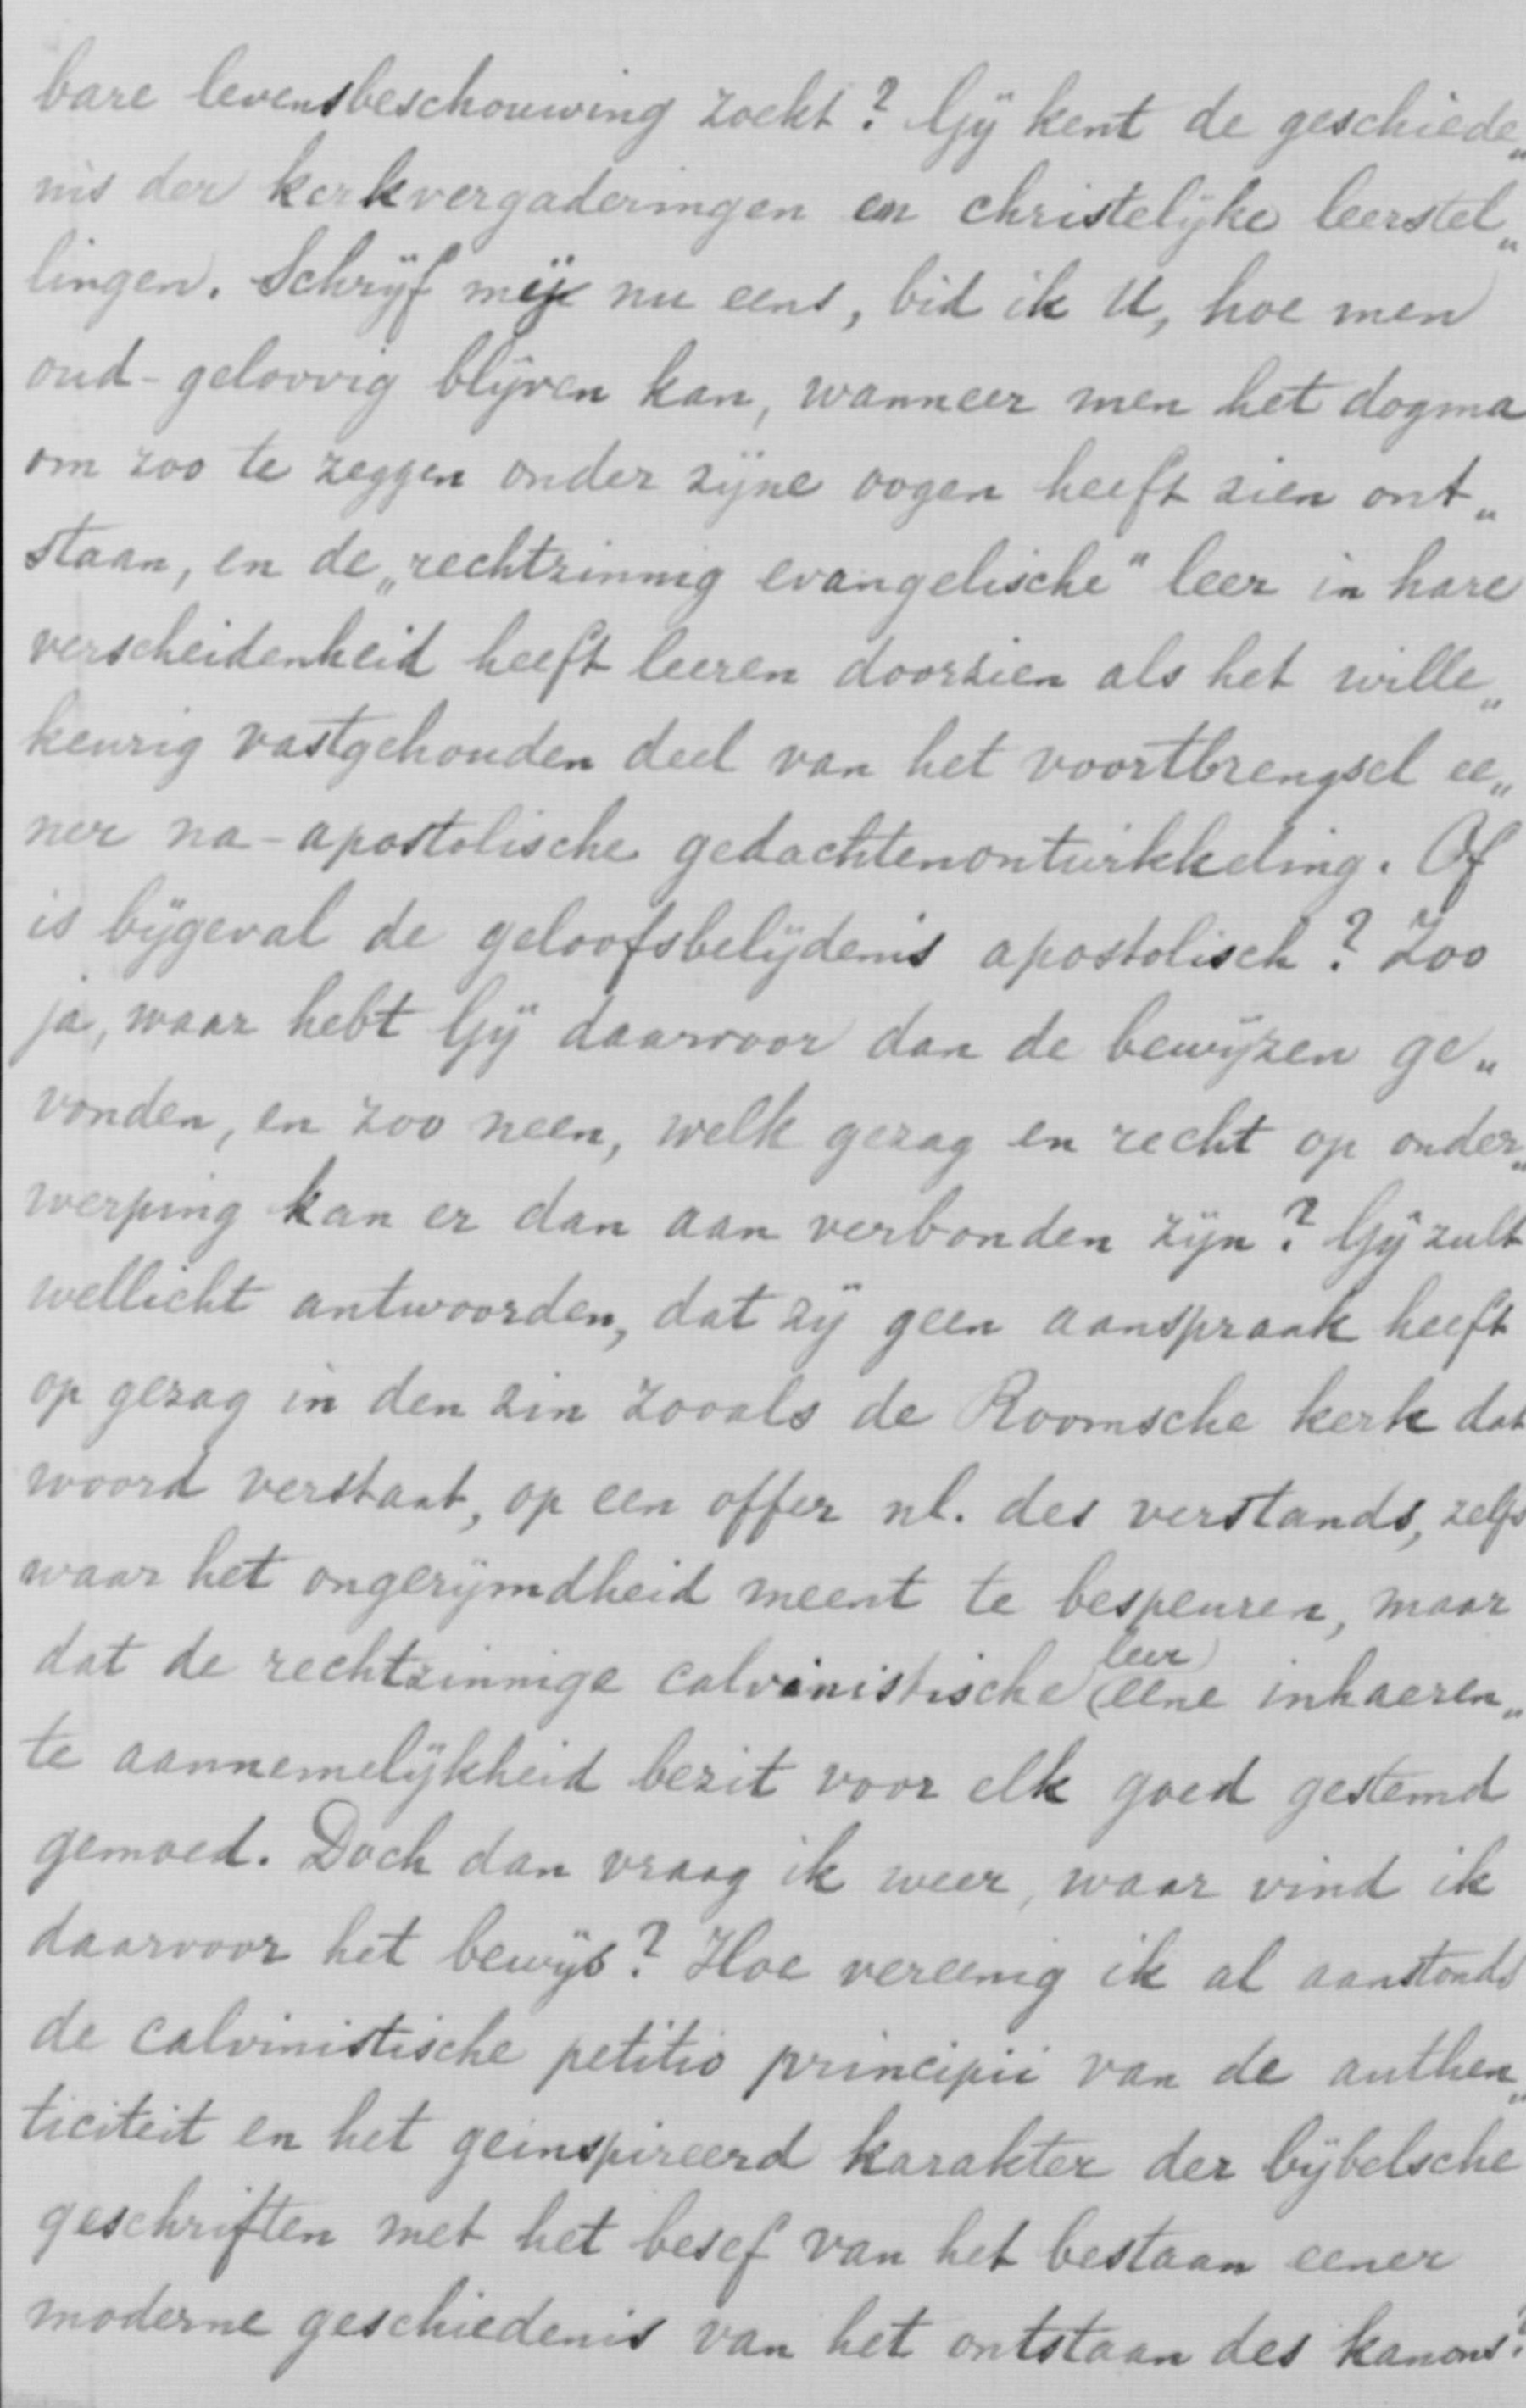 bare levensbeschouwing zoekt? Gÿ kent de geschiede„
nis der kerkvergaderingen en christelÿke leerstel„
lingen. Schrÿf mÿ nu eens, bid ik U, hoe men
oud-geloovig blÿven kan, wanneer men het dogma
om zoo te zeggen onder zÿne oogen heeft zien ont„
staan, en de „rechtzinnig evangelische" leer in hare
verscheidenheid heeft leeren doorzien als het wille„
keurig vastgehouden deel van het voortbrengsel ee„
ner na-apostolische gedachtenontwikkeling. Of
is bÿgeval de geloofsbelÿdenis apostolisch? Zoo
ja, waar hebt Gÿ daarvoor dan de bewÿzen ge„
vonden, en zoo neen, welk gezag en recht op onder„
werping kan er dan aan verbonden zÿn? Gÿ zult
wellicht antwoorden, dat zÿ geen aanspraak heeft
op gezag in den zin zooals de Roomsche kerk dat
woord verstaat, op een offer nl. des verstands, zelfs
waar het ongerÿmdheid meent te bespeuren, maar
leer
dat de rechtzinnige calvinistische (eene inhaeren„
te aannemelÿkheid bezit voor elk goed gestemd
gemoed. Doch dan vraag ik weer, waar vind ik
daarvoor het bewÿs? Hoe vereenig ik al aanstonds
de calvinistische petitio principii van de authen„
ticiteit en het geinspireerd karakter der bÿbelsche
geschriften met het besef van het bestaan eener
moderne geschiedenis van het ontstaan des kanons?